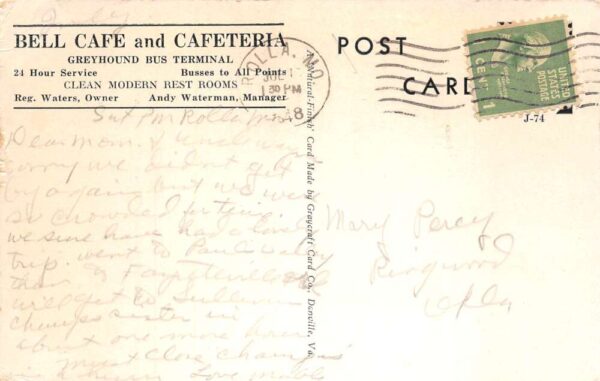 BELL CAFE and CAFETERIA
GREYHOUND BUS TERMINAL
24 Hour Service Busses to All Points
CLEAN MODERN REST ROOMS
Reg. Waters, Owner Andy Waterman, Manager
ROLLA, MO.
1 30 PM
48
POST
CARD
UNITED STATES POSTAGE
1 CENT
J-74
A "Natural-Finish" Card Made by Graycraft Card Co., Danville, Va.
Sat Pm Rolla Mo
Dear Mom &
sorry we didnt get
by again but we were
so crowded for time.
we sure have had a lovely
trip. went to
then to Fayetteville
will get to Sullivan
sister in
about one more hour
Must Close
Love
Mary Percy
Ringwood
Okla